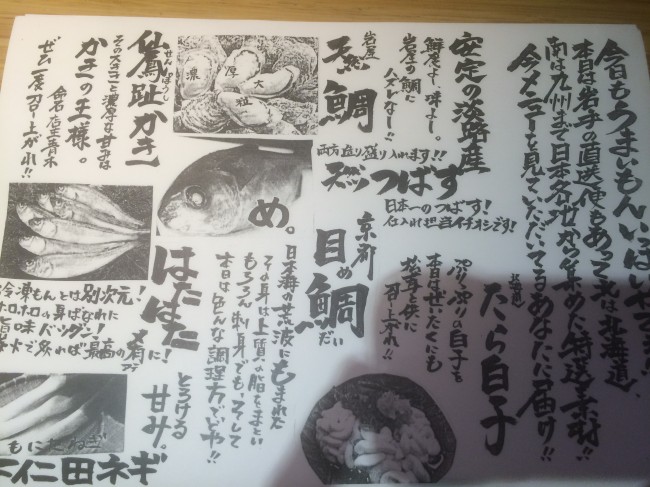 今日もうまいもんいっぱいやでぇ!!
本日は岩手の直送便もあって北は北海道、
南は九州まで日本各地から集めた特選素材!!
今メニューを見ていただいてるあなたに届け!!
北海道
たら白子
ぷりぷりの白子を
本日はぜいたくにも
松茸と供に
召し上がれ!!
安定の淡路産
鮮度よし、味よし。
岩屋の鯛に
ハズレなしー!!
岩屋
天然鯛
両方造り盛り入れます!!
天然つばす
日本一のつばす!
仕入れ担当イチオシです!
京都
目鯛
めだい
め。
日本海の荒波にもまれた
その身は上質の脂をまとい
もちろん刺身でも、そして
本日は色んな調理方でどや!!
仙鳳趾かき
せんぽうし
その大きさと濃厚な甘みは
かきの王様。
命名 店主青木
ぜひ一度召し上がれ!!
濃
厚
大
粒
はたはた
冷凍もんとは別次元!
ホロホロの身ばなれに
旨味バツグン!
炭火で炙れば最高の肴に!
とろける
甘み。
下仁田ネギ